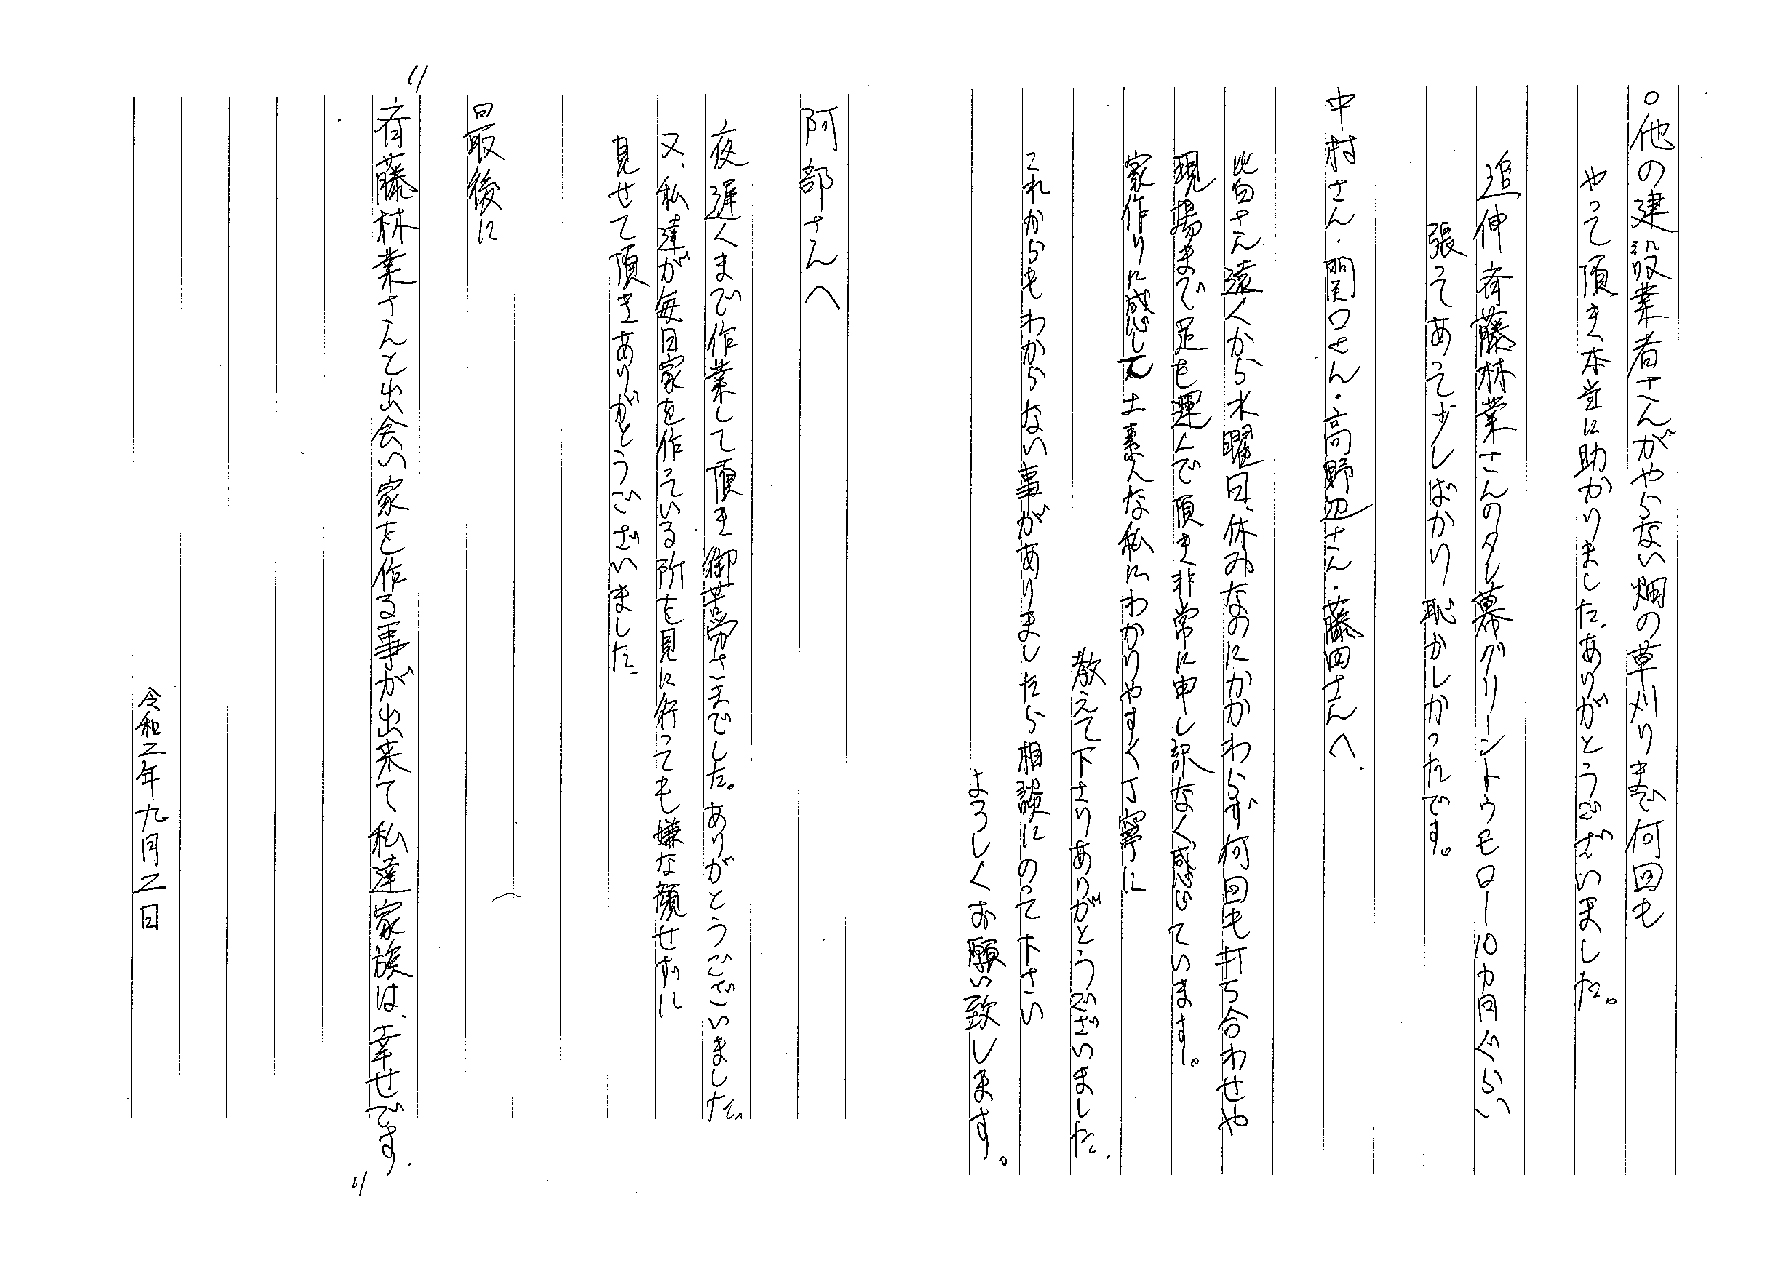 ○他の建設業者さんがやらない畑の草刈りまで何回も
やって頂き本当に助かりました。ありがとうございました。
追伸 斉藤林業さんのタレ幕グリーントゥモロー10カ月ぐらい
張ってあって少しばかり恥かしかったです。
中村さん・関口さん・高野辺さん・藤田さんへ
皆さん遠くから水曜日、休みなのにかかわらず何回も打ち合わせや
現場まで足を運んで頂き非常に申し訳なく感じています。
家作りに感心し素人な私にわかりやすく丁寧に
教えて下さりありがとうございました。
これからもわからない事がありましたら相談にのって下さい
よろしくお願い致します。
阿部さんへ
夜遅くまで作業して頂き御苦労さまでした。ありがとうございました。
又、私達が毎日家を作っている所を見に行っても嫌な顔せずに
見せて頂きありがとうございました。
最後に
〃斉藤林業さんと出会い家を作る事が出来て私達家族は、幸せです。〃
令和二年九月二日